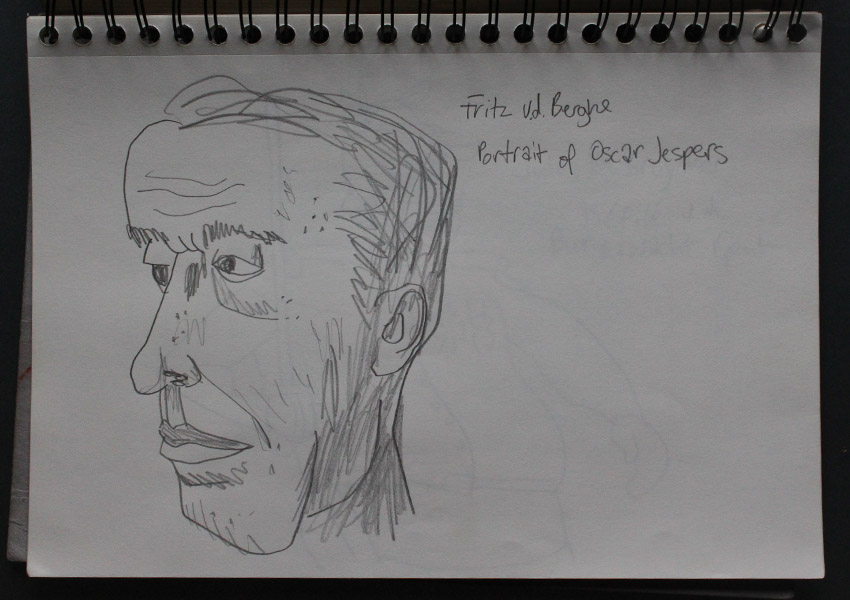 Fritz v.d. Berghe
Portrait of Oscar Jespers